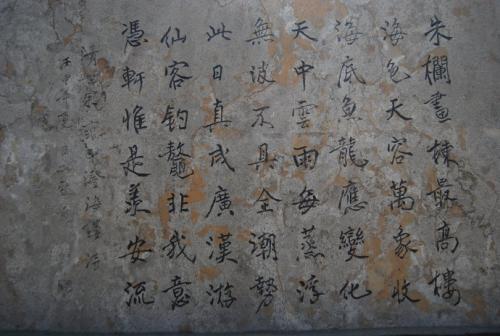 朱欄畫棟最高樓
海色天容萬象收
海底魚龍應變化
天中雲雨每蒸浮
無波不具全潮勢
此日真成廣漢游
仙客釣鰲非我意
憑軒惟是羨安流